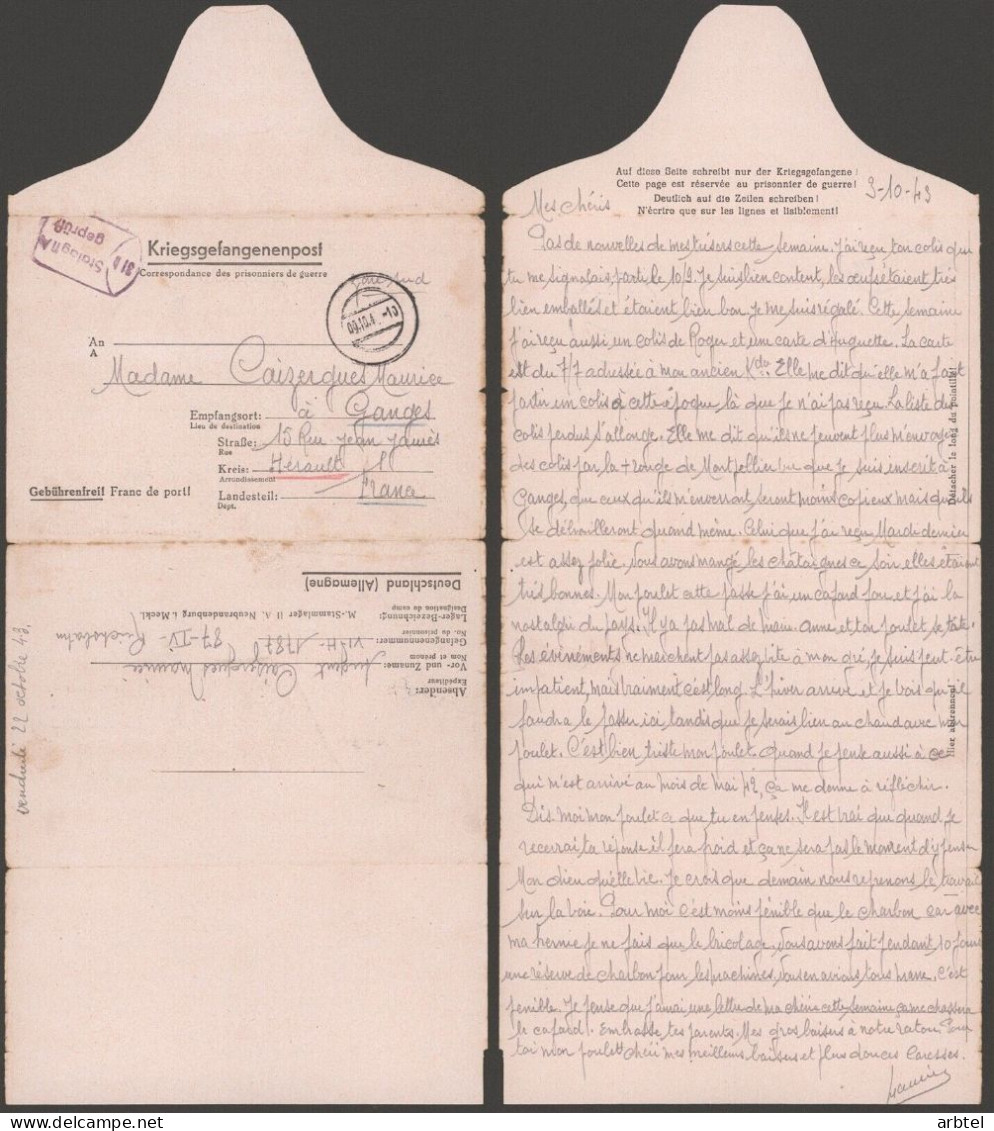 Kriegsgefangenenpost
Correspondance des prisonniers de guerre
Stalag II A
31 b
geprüft
An
A
Madame Caizergues Maurice
Empfangsort: à Ganges
Lieu de destination
Straße: 15 Rue Jean Jaurès
Rue
Kreis: Hérault
Arrondissement
Gebührenfrei! Franc de port!
Landesteil: France
Dépt.
Deutschland (Allemagne)
Lager-Bezeichnung: M.-Stammlager II A. Neubrandenburg i. Meckl.
Désignation du camp
Gefangenennummer:
No. du prisonnier
Vor- und Zuname: Sergent Caizergues Maurice
Nom et prénom
Absender:
Expéditeur
vendredi 22 octobre 43.
Auf diese Seite schreibt nur der Kriegsgefangene!
Cette page est réservée au prisonnier de guerre!
Deutlich auf die Zeilen schreiben!
N'écrire que sur les lignes et lisiblement!
3-10-43
Mes chéris
Pas de nouvelles de mes trésors cette semaine. J'ai reçu ton colis que
tu me signalais parti le 10/9. Je suis bien content, les œufs étaient très
bien emballés et étaient bien bon je me suis régalé. Cette semaine
j'ai reçu aussi un colis de Roger et une carte d'Huguette. La carte
est du 7/7 adressée à mon ancien Kdo. Elle me dit qu'elle m'a fait
partir un colis à cette époque là que je n'ai pas reçu. La liste des
colis perdus s'allonge. Elle me dit qu'ils ne peuvent plus m'envoyer
des colis par la + rouge de Montpellier vu que je suis inscrit à
Ganges, que ceux qu'ils m'enverront seront moins copieux mais qu'ils
se débrouilleront quand même. Celui que j'ai reçu Mardi dernier
est assez joli. Nous avons mangé les châtaignes ce soir elles étaient
très bonnes. Mon poulet cette fois j'ai un cafard fou et j'ai la
nostalgie du pays. Il y a pas mal de main. anne et ton poulet se tâte.
Les évènements ne marchent pas assez vite à mon gré, je suis peut-être
impatient, mais vraiment c'est long. L'hiver arrive et je vois qu'il
faudra le passer ici tandis que je serais bien au chaud avec mon
poulet. C'est bien triste mon poulet quand je pense aussi à ce
qui m'est arrivé au mois de mai 42, ça me donne à réfléchir.
Dis moi mon poulet ce que tu en penses. Il est vrai que quand je
recevrai la réponse il fera froid et ça ne sera pas le moment d'y penser
Mon dieu quelle vie. Je crois que demain nous reprenons le travail
sur la voie. Pour moi c'est moins pénible que le charbon car avec
ma hernie je ne fais que le bricolage. Nous avons fait pendant 10 jours
une réserve de charbon pour les machines, nous en avions tous marre. C'est
pénible. Je pense que j'aurai une lettre de ma chérie cette semaine ça me chassera
le cafard! Embrasse tes parents. Mes gros baisers à notre raton. Pour
toi mon poulet chéri mes meilleurs baisers et plus douces caresses.
Maurice
Détacher le long du pointillé!
Hier abtrennen!
arbtel